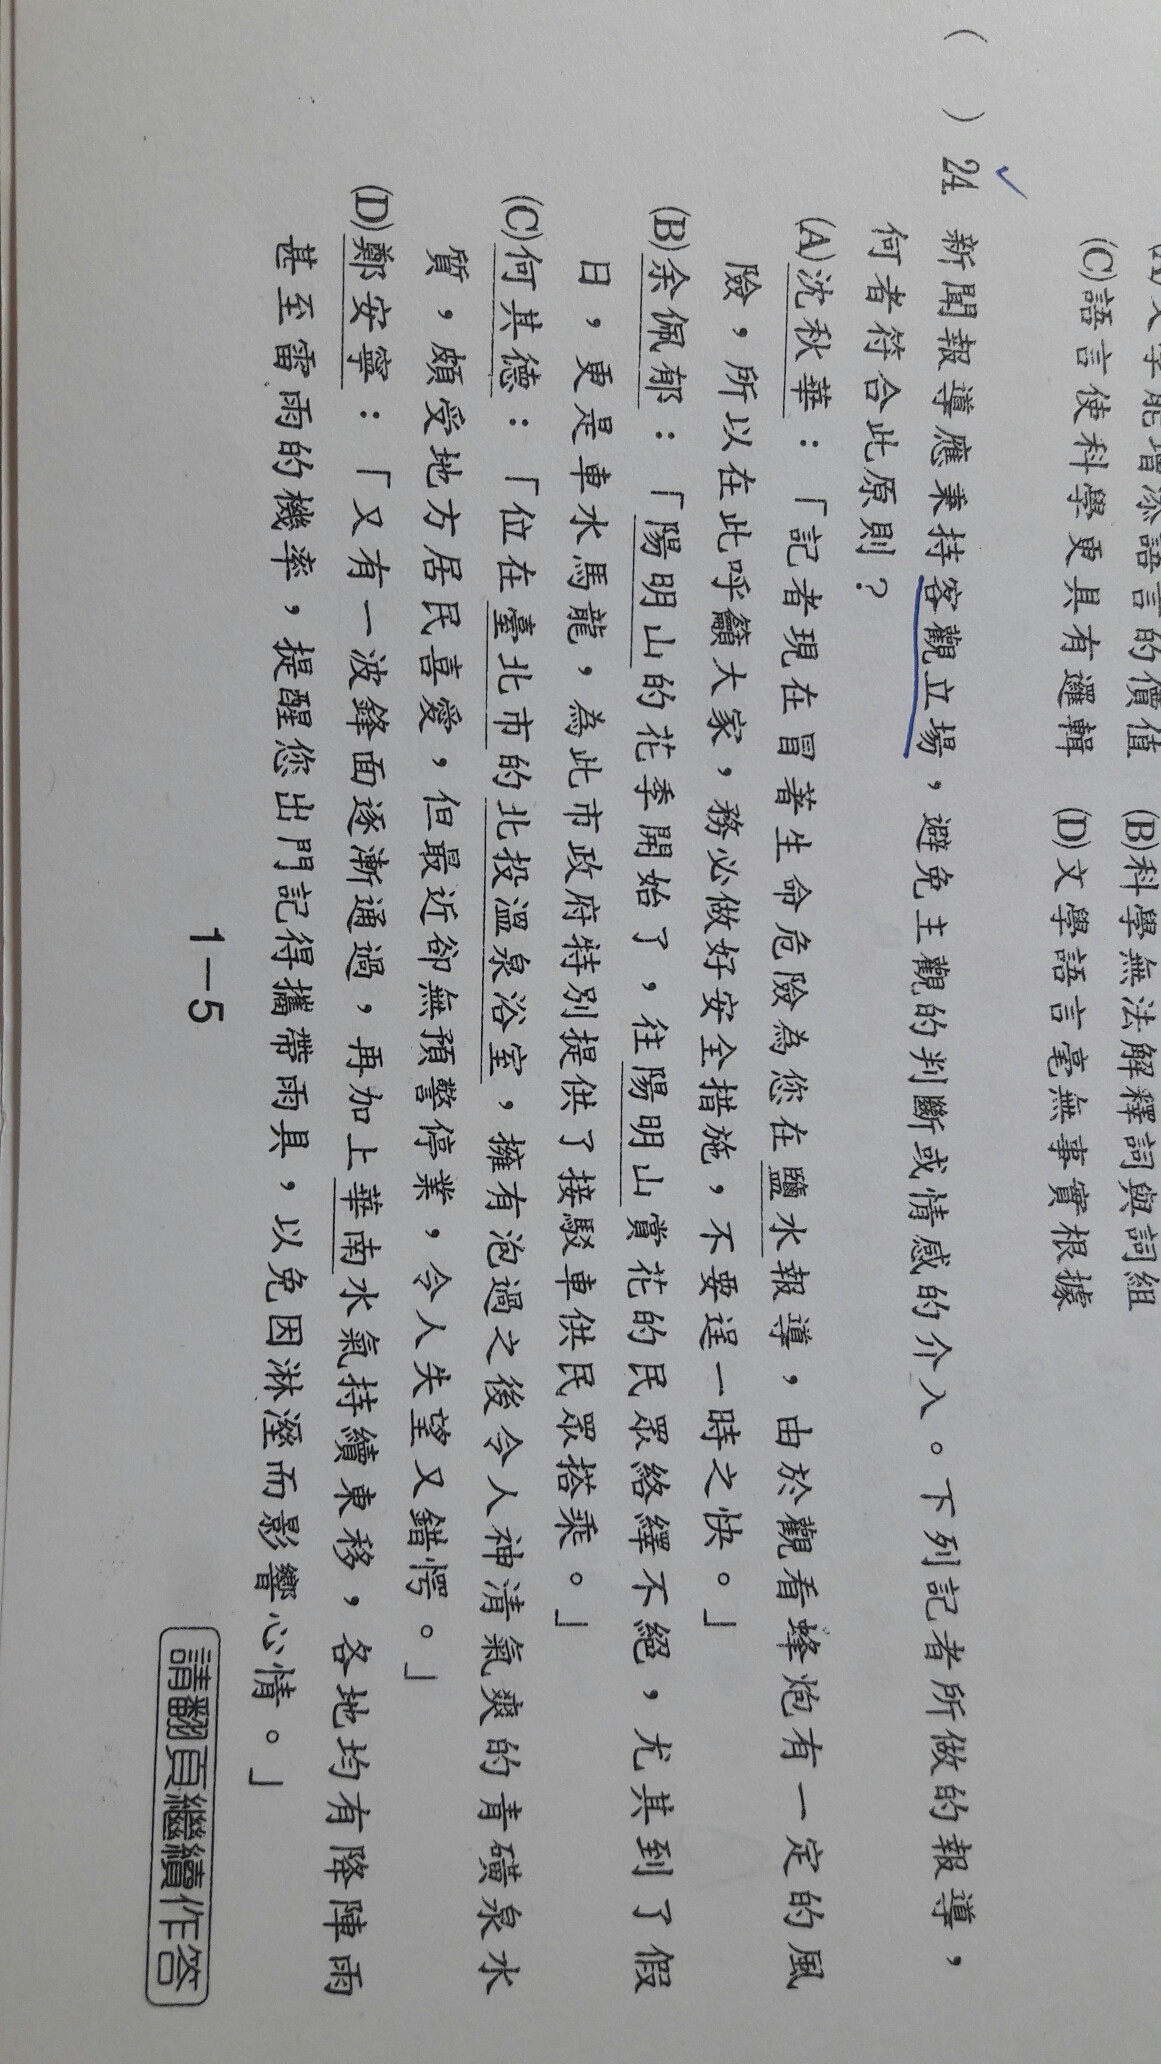 (C)語言使科學更具有邏輯 (D)文學語言毫無事實根據
( ) 24. 新聞報導應秉持客觀立場，避免主觀的判斷或情感的介入。下列記者所做的報導，
何者符合此原則？
(A)沈秋華：「記者現在冒著生命危險為您在鹽水報導，由於觀看蜂炮有一定的風
險，所以在此呼籲大家，務必做好安全措施，不要逞一時之快。」
(B)余佩郁：「陽明山的花季開始了，往陽明山賞花的民眾絡繹不絕，尤其到了假
日，更是車水馬龍，為此市政府特別提供了接駁車供民眾搭乘。」
(C)何其德：「位在臺北市的北投溫泉浴室，擁有泡過之後令人神清氣爽的青磺泉水
質，頗受地方居民喜愛，但最近卻無預警停業，令人失望又錯愕。」
(D)鄭安寧：「又有一波鋒面逐漸通過，再加上華南水氣持續東移，各地均有降陣雨
甚至雷雨的機率，提醒您出門記得攜帶雨具，以免因淋溼而影響心情。」
1－5
請翻頁繼續作答